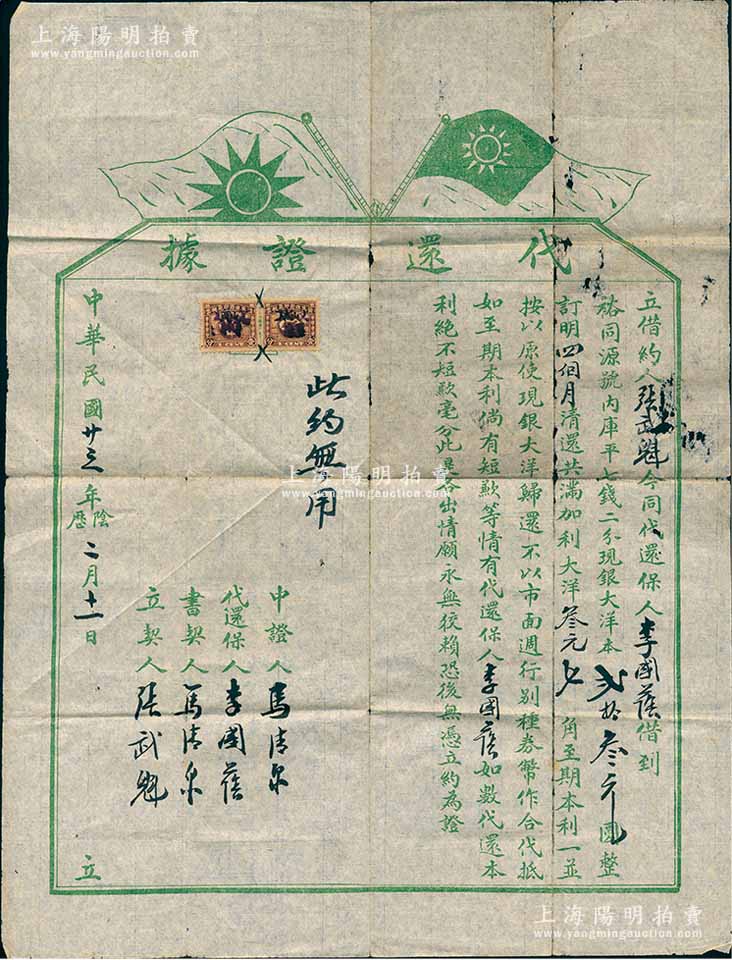 上海陽明拍賣
www.yangmingauction.com
代還證據
立借約人張武魁今同代還保人李國蓓借到
裕同源號內庫平七錢二分現銀大洋本貳拾叁元國整
訂明四個月清還共滿加利大洋叁元七角至期本利一並
按以原使現銀大洋歸還不以市面週行別種券幣作合代抵
如至期本利倘有短歉等情有代還保人李國蓓如數代還本
利絕不短歉毫分此是各出情願永無狡賴恐後無憑立約為證
此約無用
中證人馬清泉
代還保人李國蓓
書契人馬清泉
立契人張武魁
中華民國廿三年陰歷二月十一日立
上海陽明拍賣
www.yangmingauction.com
上海陽明拍賣
www.yangmingauction.com